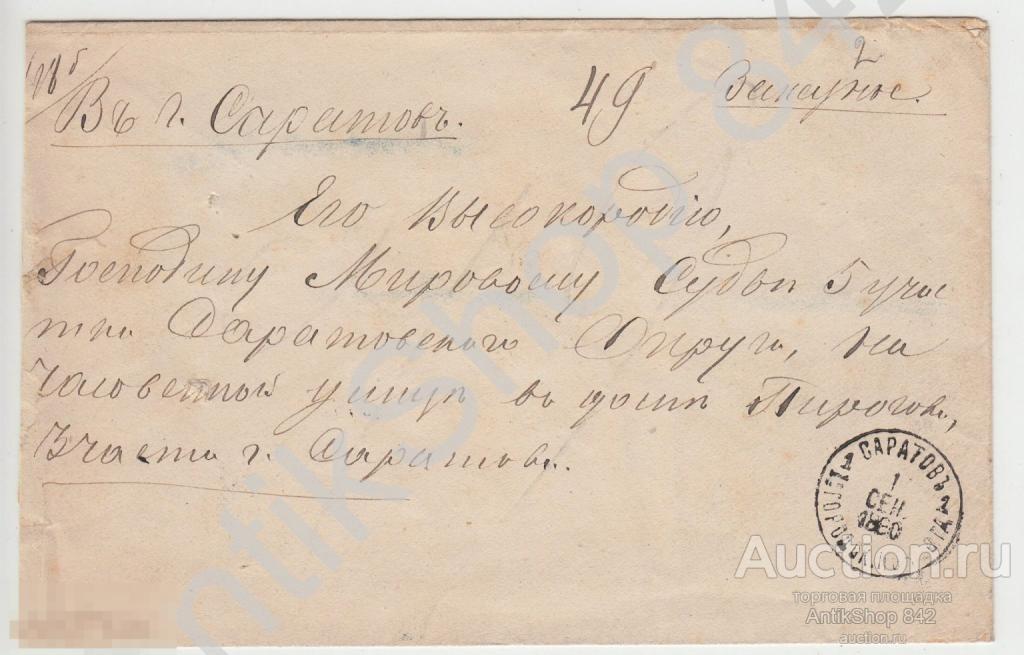 2
49 Заказное.
Въ г. Саратовъ.
Его Высокородію,
Господину Мировому Судьѣ 5 учас
тка Саратовскаго Округа, на
Часовенной улицѣ въ домѣ Пирогова,
3 части г. Саратова.
САРАТОВЪ 2
1
СЕН.
1880
ГОРОДСК. ПОЧТА
Auction.ru
торговая площадка
AntikShop 842
auction.ru
AntikShop 842